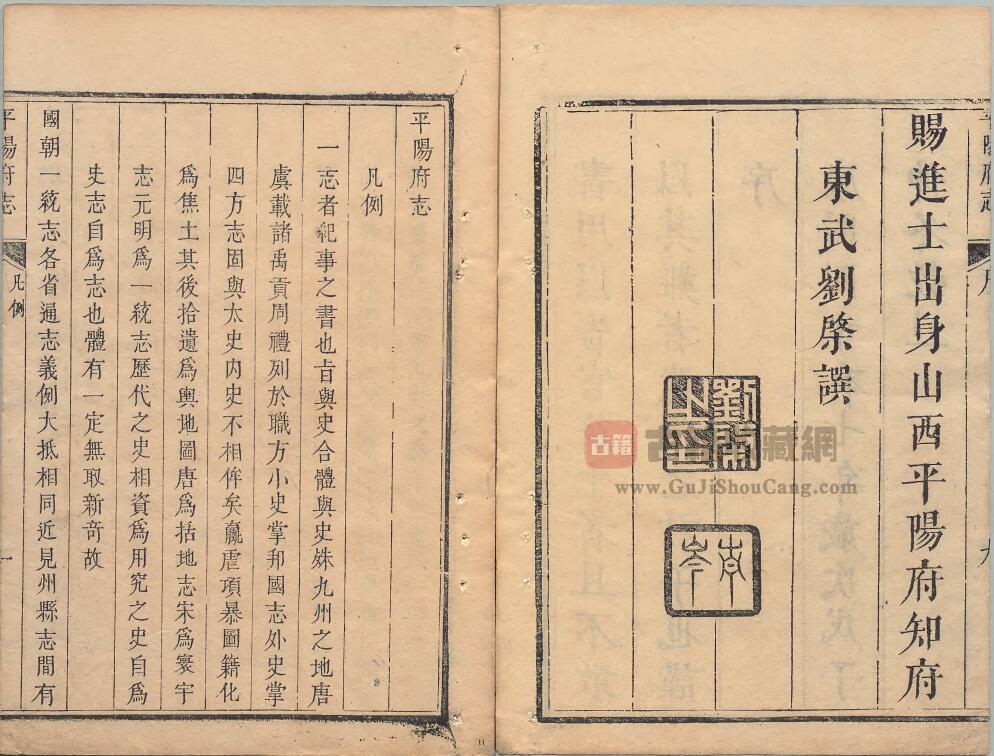 平陽府志 序 九
賜進士出身山西平陽府知府
東武劉棨譔
劉棨之印
青岑
古籍
藏網
www.GuJiShouCang.com
平陽府志
凡例
一志者紀事之書也旨與史合體與史殊九州之地唐
虞載諸禹貢周禮列於職方小史掌邦國志外史掌
四方志固與太史內史不相侔矣嬴虐項暴圖籍化
爲焦土其後拾遺爲輿地圖唐爲括地志宋爲寰宇
志元明爲一統志歷代之史相資爲用究之史自爲
史志自爲志也體有一定無取新奇故
國朝一統志各省通志義例大抵相同近見州縣志間有
平陽府志 凡例 一